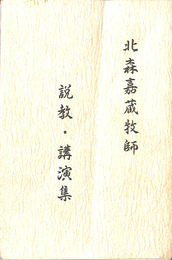 北森嘉蔵牧師
説教・講演集